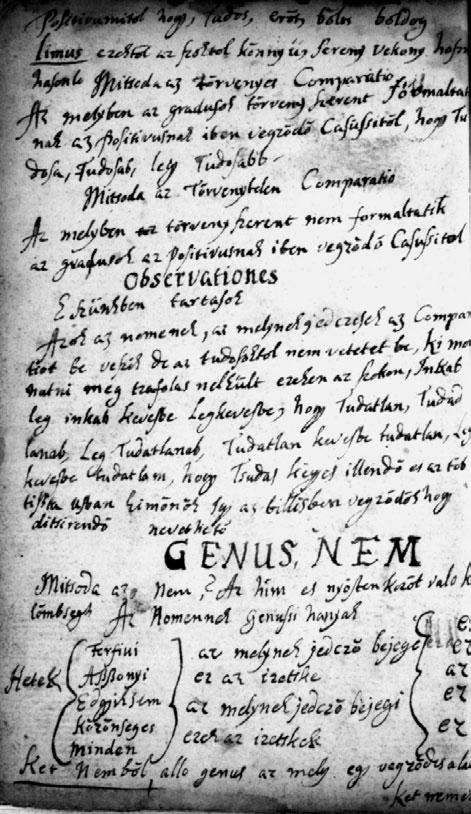 Positivumitol hogy, Tudos, erös bölcs boldog
limus ezektöl az szoktol könnyü, Sereny vekony
hasonlo Mitsoda az Törvenyes Comparatio
Az melyben az gradusok törveny szerent formaltat
nak az Positivusnak iben vegzödö Casussitöl, hogy Tu
dosa, Tudosab, leg Tudosabb
Mitsoda az Törvenytelen Comparatio
Az melyben az törveny szerent nem formaltatik
az gradusok az Positivusnak iben vegzödö Casussitol
Observationes
Eszünkben tartasok
Azok az nomenek, az melynek jedczesek az Compar
tiot be veszik de az tudosoktol nem vetetet be, Ki mo
natni meg trafolas nelkült ezeken az szokon, Inkab
leg inkab kevesbe Legkevesbe, hogy Tudatlan, Tudat
lanab, Leg Tudatlanab, Tudatlan kevesbe tudatlan, Leg
kevesbe tudatlam, hogy Tsudas kegyes illendö es az töb
tiszta usban kimönök igy az billisben vegzödök hogy
ditsirendö nevethetö
GENUS, NEM
Mitsoda az Nem? Az him es nyösten közöt valo k
lömbsegh Az Nomennek Genussi hanyak
Hetek
ferfiui
Aszszonyi
Edgyiksem
Közönseges
minden
az melynek jedczö bejegi
ez az izetske
az melynek jedczö bejegi
ezek az izetskek
ez
ez
az
ez
ez
Ket Nemböl, allo genus az mely egy vegzödes ala
ket neme